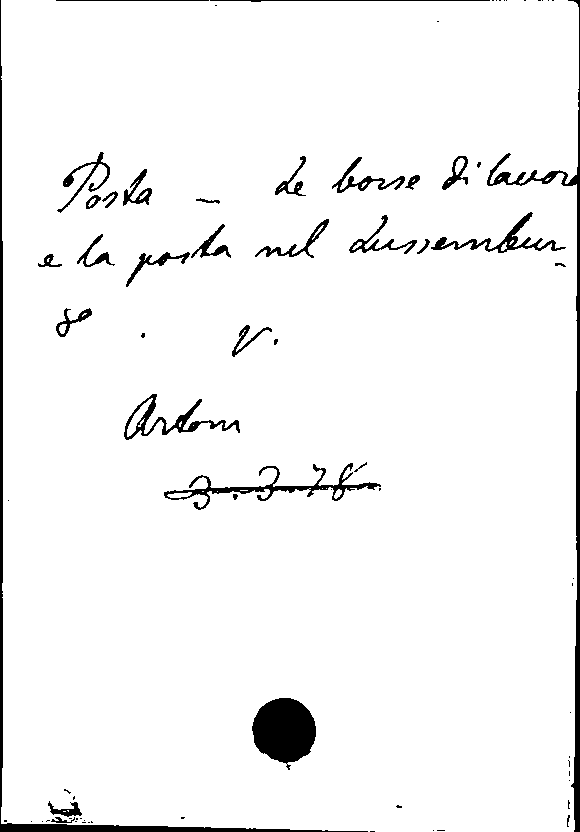 Posta – Le borse di lavoro
e la posta nel Lussembur-
go . V.
Artom
3.3.78